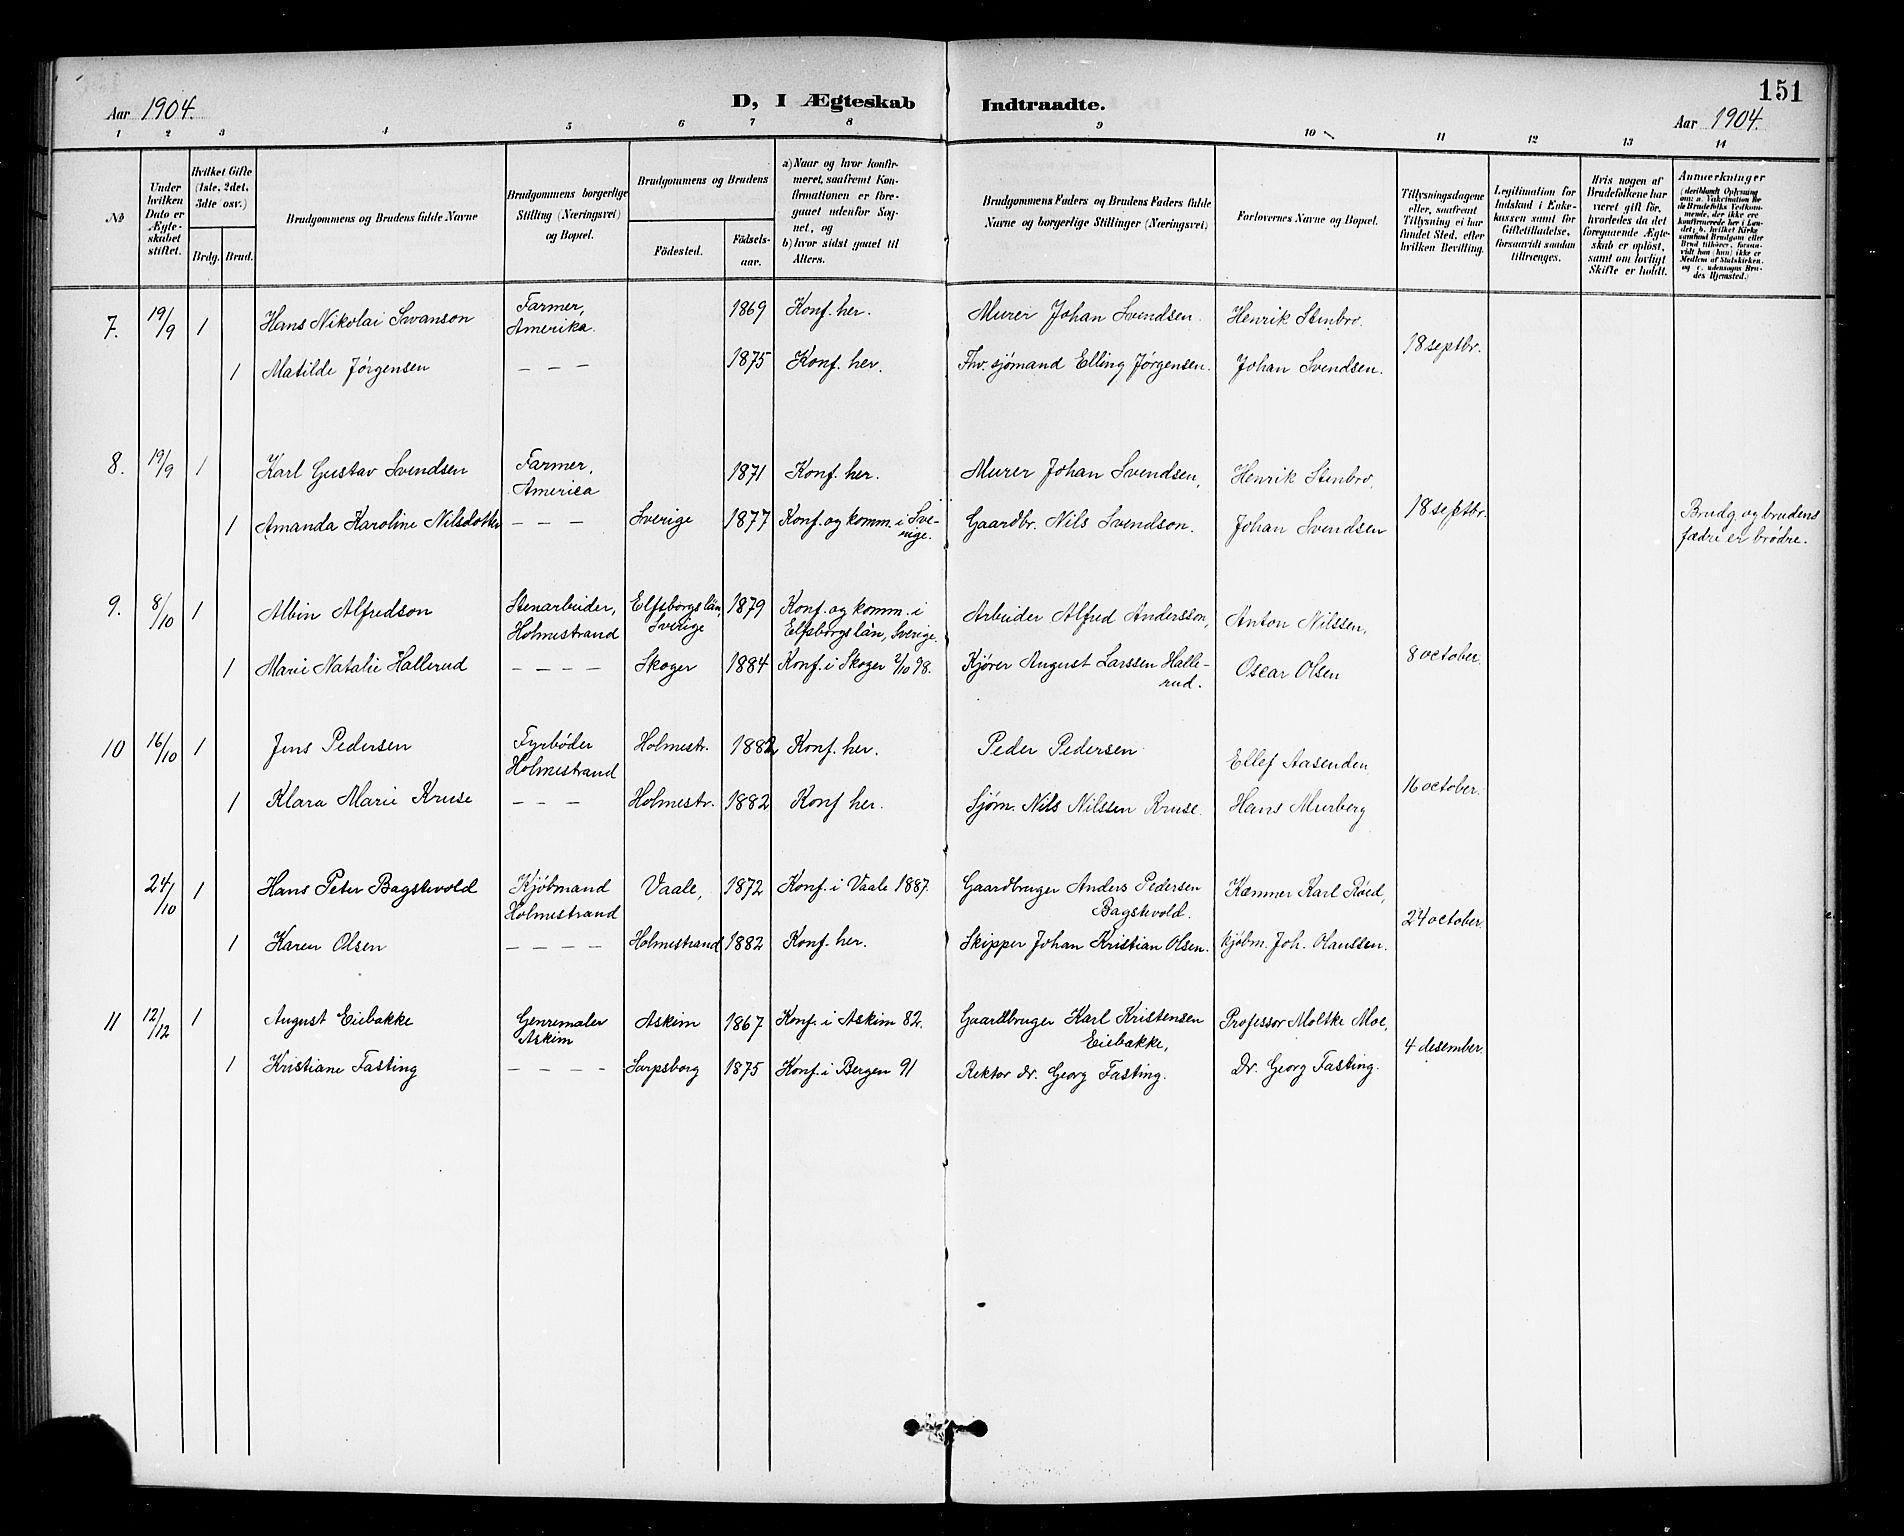 151
Aar 1904.
D, I Ægteskab Indtraadte.
Aar 1904.
1 2 3 4 5 6 7 8 9 10 11 12 13 14
No
Under hvilken Dato er Ægteskabet stiftet.
Hvilket Gifte (1ste, 2det, 3die osv.)
Brdg. Brud.
Brudgommens og Brudens fulde Navne
Brudgommens borgerlige Stilling (Næringsvei) og Bopæl.
Brudgommens og Brudens
Födested.
Födselsaar.
a) Naar og hvor konfirmeret, saafremt Konfirmationen er foregaaet udenfor Sognet, og
b) hvor sidst gaaet til Alters.
Brudgommens Faders og Brudens Faders fulde Navne og borgerlige Stillinger (Næringsvei)
Forlovernes Navne og Bopæl.
Tillysningsdagene eller, saafremt Tillysning ei har fundet Sted, efter hvilken Bevilling.
Legitimation for Indskud i Enkekassen samt for Giftetilladelse, forsaavidt saadan tiltrænges.
Hvis nogen af Brudefolkene har været gift för, hvorledes da det foregaaende Ægteskab er oplöst, samt om lovligt Skifte er holdt.
Anmærkninger
(deriblandt Oplysning om: a. Vakcination for de Brudefolks Vedkommende, der ikke ere konfirmerede her i Landet; b. hvilket Kirkesamfund Brudgom eller Brud tilhörer, forsaavidt han (hun) ikke er Medlem af Statskirken, og c. udensogns Brudes Hjemsted.)
7. 19/9 1 Hans Nikolai Swanson Farmer, Amerika. 1869 Konf. her. Murer Johan Svendsen Henrik Stenbro. 18 septbr.
1 Matilde Jørgensen – – – 1875 Konf. her. Fhv. sjømand Elling Jørgensen. Johan Svendsen.
8. 19/9 1 Karl Gustav Svendsen Farmer, America 1871 Konf. her. Murer Johan Svendsen, Henrik Stenbro, 18 septbr.
1 Amanda Karoline Nilsdotter – – – Sverige 1877 Konf. og komm. i Sverige. Gaardbr. Nils Svendson. Johan Svendsen Brudg. og brudens fædre er brødre.
9. 8/10 1 Albin Alfredson Stenarbeider, Holmestrand Elfsborgs län, Sverige 1879 Konf. og komm. i Elfsborgs län, Sverige. Arbeider Alfred Andersson, Anton Nilssen, 8 october.
1 Marie Natalie Hallerud – – – – Skoger 1884 Konf. i Skoger 2/10 98. Kjører August Larssen Hallerud. Oscar Olsen
10 16/10 1 Jens Pedersen Fyrbøder Holmestrand Holmestr. 1882 Konf. her. Peder Pedersen Ellef Aasenden, 16 october.
1 Klara Marie Kruse – – – Holmestr. 1882 Konf her. Sjøm. Nils Nilssen Kruse. Hans Murberg
24/10 1 Hans Peter Bagstevold Kjøbmand Holmestrand Vaale, 1872 Konf. i Vaale 1887. Gaardbruger Anders Pedersen Bagstevold. Kæmner Karl Røed, 24 october.
1 Karen Olsen – – – – Holmestrand 1882 Konf. her. Skipper Johan Kristian Olsen. kjøbm. Joh. Olaussen.
11 12/12 1 August Eiebakke Genremaler Askim Askim 1867 Konf. i Askim 82. Gaardbruger Karl Kristensen Eiebakke, Professor Moltke Moe, 4 desember.
1 Kristiane Fasting – – – – Sarpsborg 1875 Konf. i Bergen 91 Rektor dr. Georg Fasting. Dr. Georg Fasting.